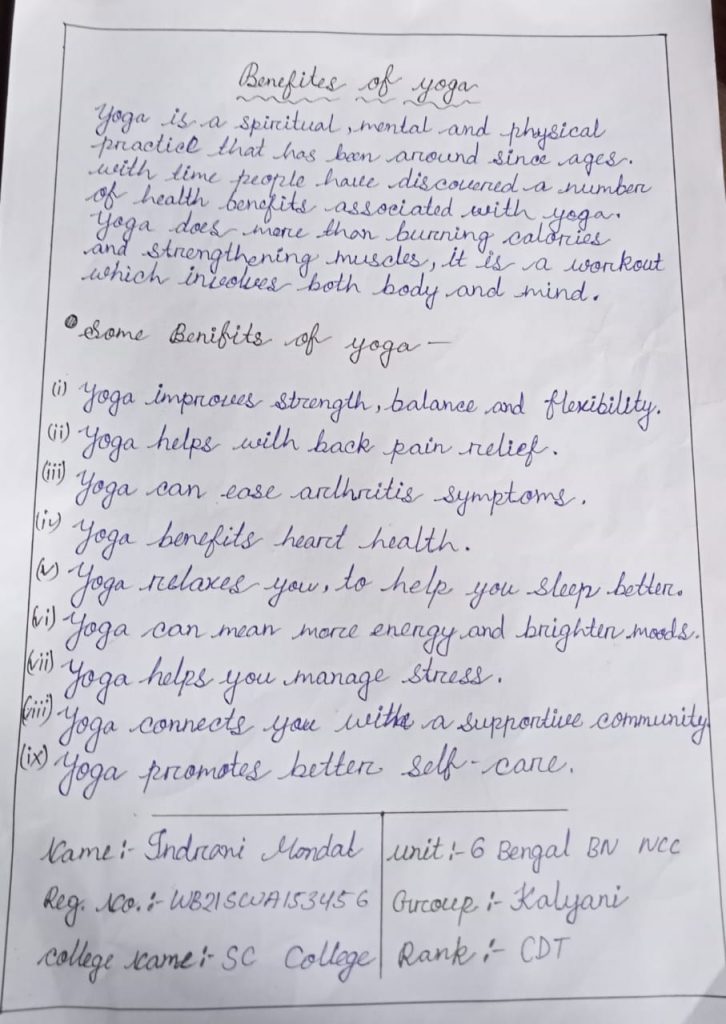 Benefites of yoga
Yoga is a spiritual, mental and physical
practice that has been around since ages.
with time people have discovered a number
of health benefits associated with yoga.
Yoga does more than burning calories
and strengthening muscles, it is a workout
which involves both body and mind.
• Some Benifits of yoga —
(i) Yoga improves strength, balance and flexibility.
(ii) Yoga helps with back pain relief.
(iii) Yoga can ease arthritis symptoms.
(iv) Yoga benefits heart health.
(v) Yoga relaxes you, to help you sleep better.
(vi) Yoga can mean more energy and brighten moods.
(vii) Yoga helps you manage stress.
(viii) Yoga connects you with a supportive community
(ix) Yoga promotes better self-care.
Name:- Indrani Mondal
Reg. No.:- WB21SWA153456
College Name:- SC College
Unit:- 6 Bengal BN NCC
Group:- Kalyani
Rank:- CDT